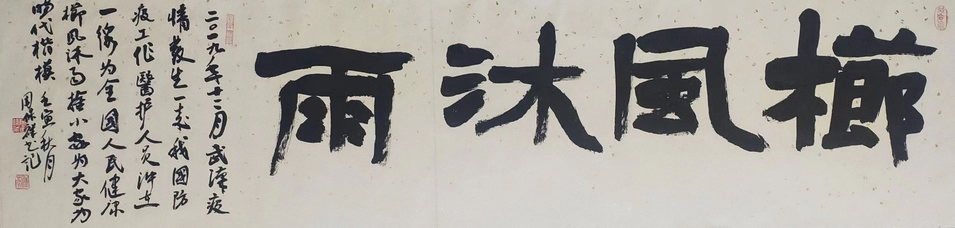 櫛風沐雨
二〇一九年十二月武漢疫
情發生一来我國防
疫工作醫护人员冲在
一線为全國人民健康
櫛風沐雨捨小家为大家为
時代楷模壬寅秋月
周